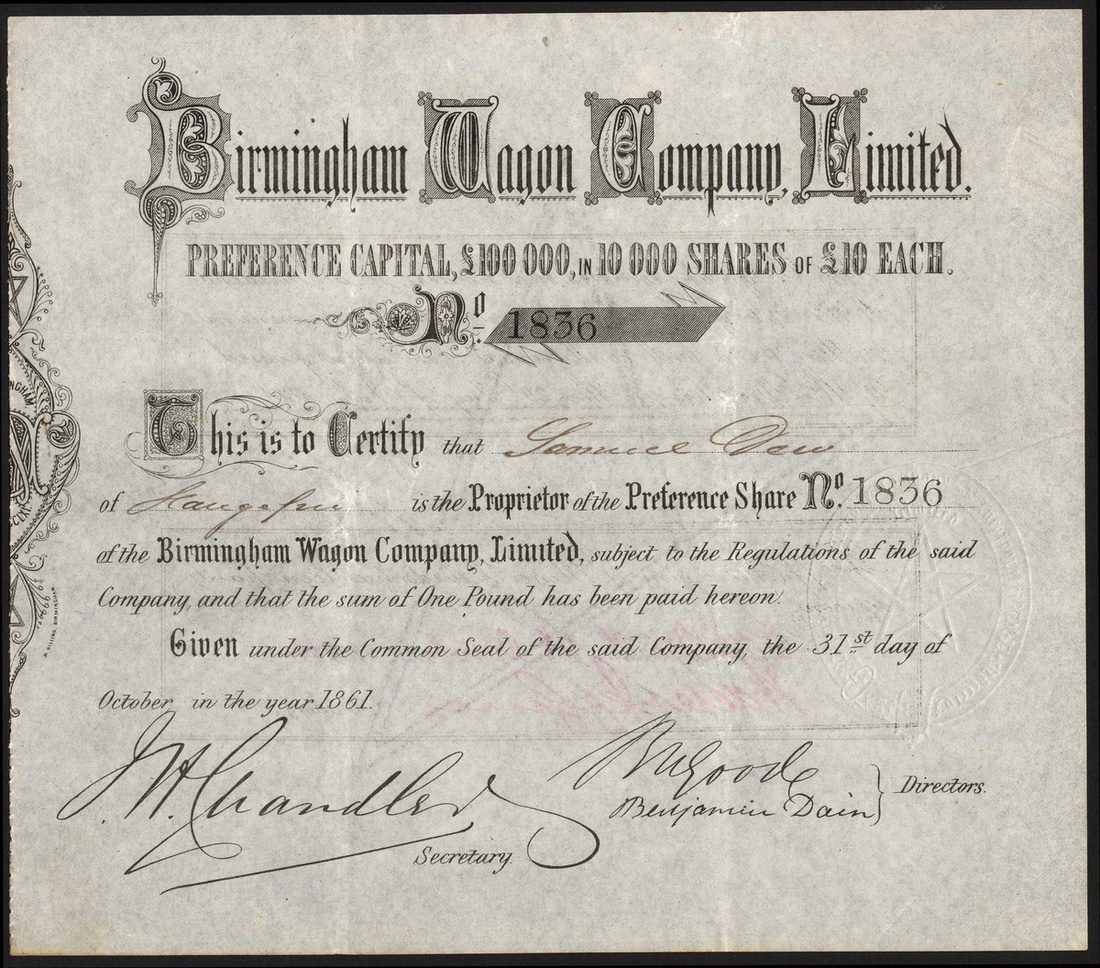 Birmingham Wagon Company, Limited.
PREFERENCE CAPITAL, £100 000, IN 10 000 SHARES OF £10 EACH.
No. 1836
This is to Certify that Samuel Dew
of is the Proprietor of the Preference Share No. 1836
of the Birmingham Wagon Company, Limited, subject to the Regulations of the said
Company, and that the sum of One Pound has been paid hereon.
Given under the Common Seal of the said Company, the 31st day of
October in the year 1861.
J. H. Chandler
Secretary.
Good
Benjamin Dain
Directors.